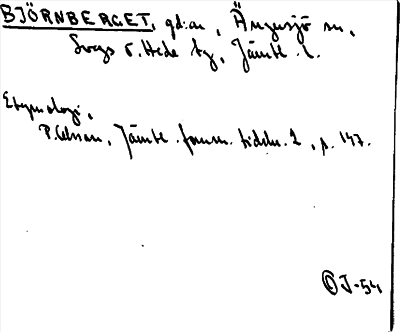 BJÖRNBERGET, gd:ar, Ängersjö sn,
Svegs o. Hede tg, Jämtl. l.
Etymologi,
P. Nilsson, Jämtl. fornm. tidskr. 2, p. 147.
J-54